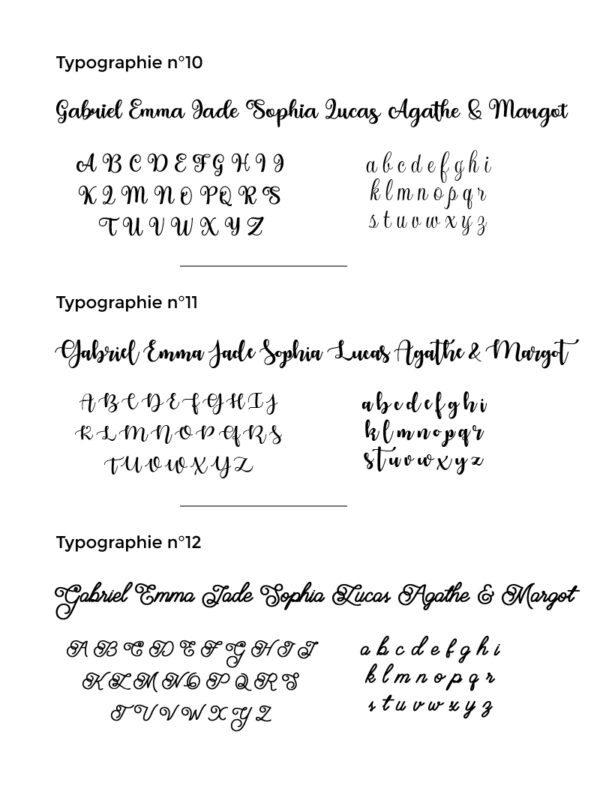 Typographie n°10
Gabriel Emma Jade Sophia Lucas Agathe & Margot
A B C D E F G H I J
K L M N O P Q R S
T U V W X Y Z
a b c d e f g h i
k l m n o p q r
s t u v w x y z
Typographie n°11
Gabriel Emma Jade Sophia Lucas Agathe & Margot
A B C D E F G H I J
K L M N O P Q R S
T U V W X Y Z
a b c d e f g h i
k l m n o p q r
s t u v w x y z
Typographie n°12
Gabriel Emma Jade Sophia Lucas Agathe & Margot
A B C D E F G H I J
K L M N O P Q R S
T U V W X Y Z
a b c d e f g h i
k l m n o p q r
s t u v w x y z